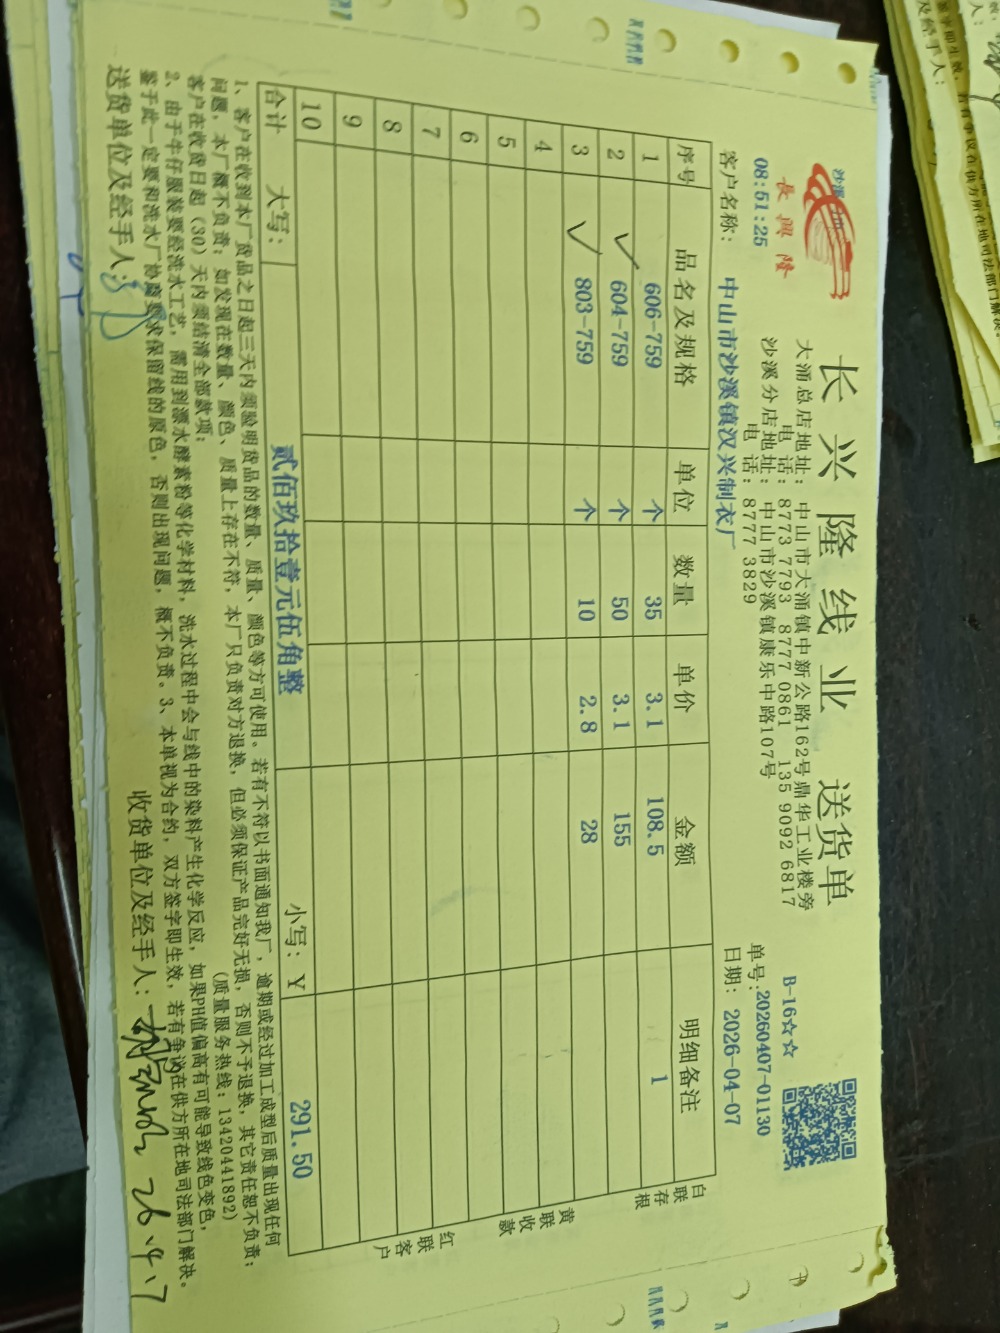 沙溪
長興隆
长兴隆线业 送货单
B-16☆☆
大涌总店地址: 中山市大涌镇中新公路162号鼎华工业楼旁
电 话: 8773 7793 8777 0861 135 9092 6817
沙溪分店地址: 中山市沙溪镇康乐中路107号
电 话: 8777 3829
08:51:25
单号: 20260407-01130
客户名称: 中山市沙溪镇汉兴制衣厂
日期: 2026-04-07
序号 品名及规格 单位 数量 单价 金额 明细备注
1 606-759 个 35 3.1 108.5 1
2 604-759 个 50 3.1 155
3 803-759 个 10 2.8 28
4
5
6
7
8
9
10
合计 大写: 贰佰玖拾壹元伍角整 小写: Y 291.50
白联存根
黄联收款
红联客户
1、客户在收到本厂货品之日起三天内须验明货品的数量、质量、颜色等方可使用。若有不符以书面通知我厂,逾期或经过加工成型后质量出现任何
问题,本厂概不负责;如发现在数量、颜色、质量上存在不符,本厂只负责对方退换,但必须保证产品完好无损,否则不予退换,其它责任恕不负责;
客户在收货日起(30)天内须结清全部款项; (质量服务热线:13420441892)
2、由于牛仔服装要经洗水工艺,需用到漂水酵素粉等化学材料,洗水过程中会与线中的染料产生化学反应,如果PH值偏高有可能导致线色变色,
鉴于此一定要和洗水厂协商要求保留线的原色,否则出现问题,概不负责。3、本单视为合约,双方签字即生效,若有争议在供方所在地司法部门解决。
送货单位及经手人:
收货单位及经手人: 26.4.7